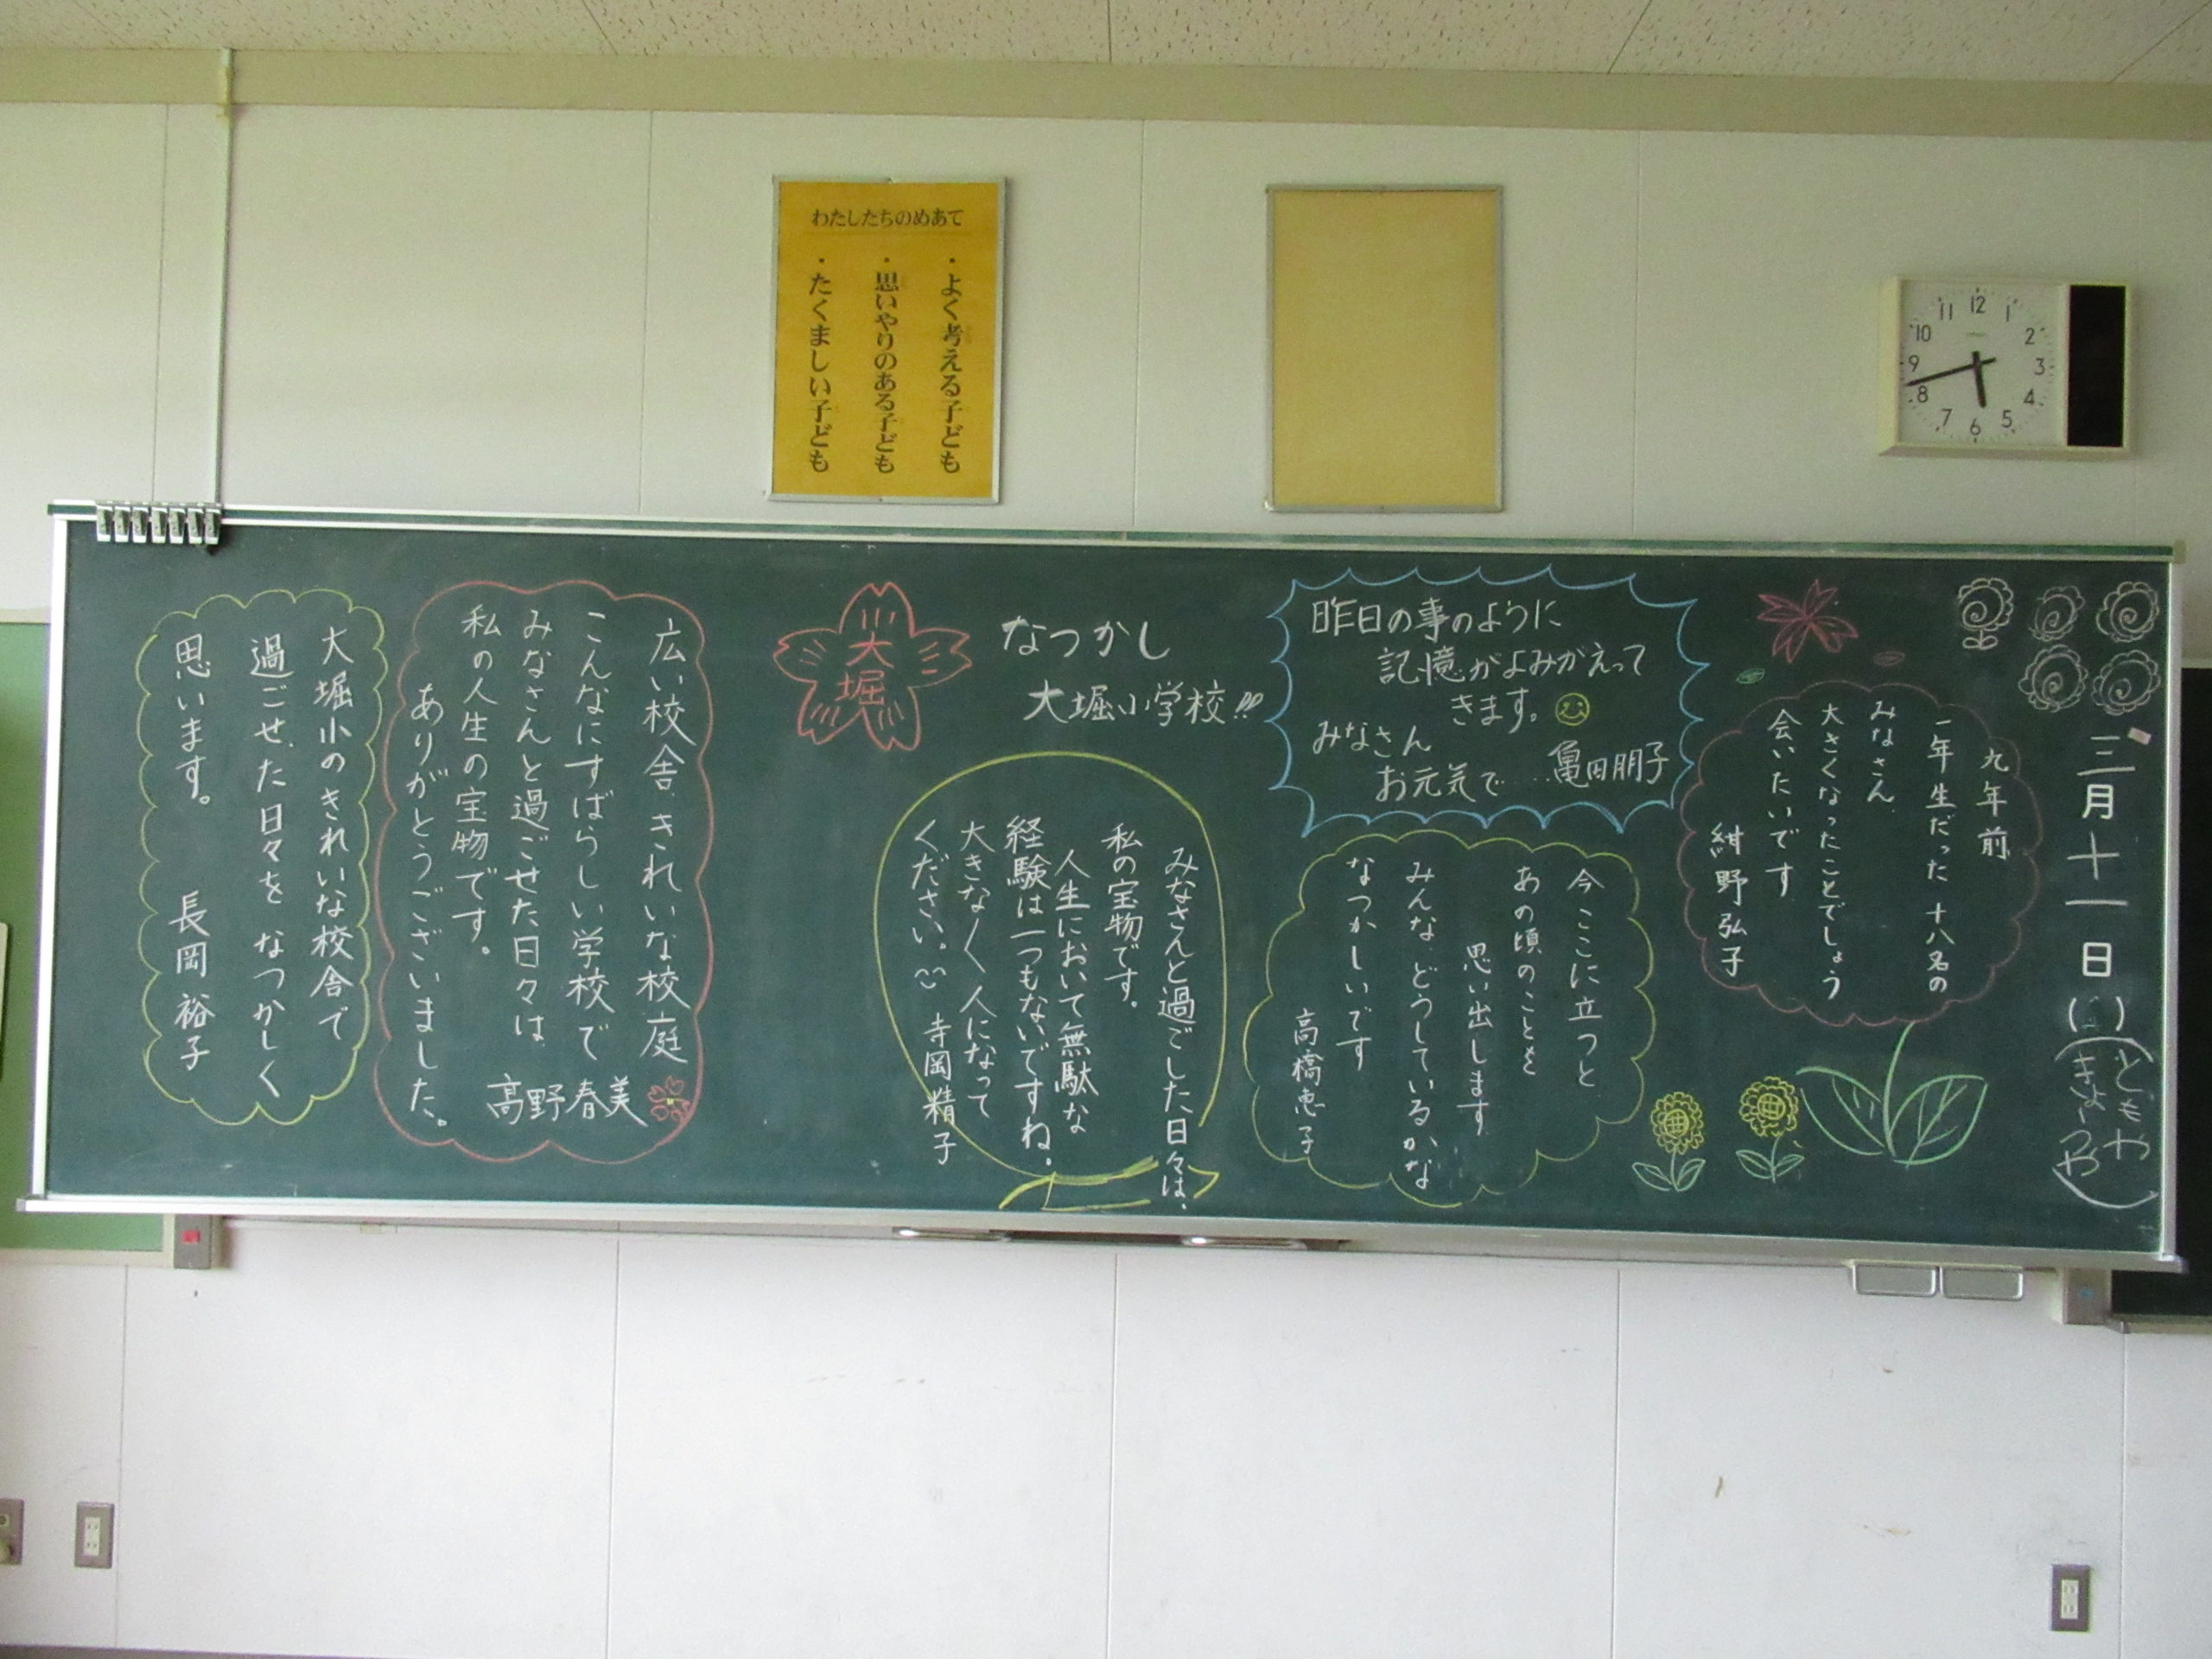 わたしたちのめあて
・よく考える子ども
・思いやりのある子ども
・たくましい子ども
12
1
2
3
4
5
6
7
8
9
10
11
三月十一日(　)
ともや
きょうや
九年前
一年生だった十八名の
みなさん
大きくなったことでしょう
会いたいです
紺野弘子
昨日の事のように
記憶がよみがえって
きます。
みなさん
お元気で‥‥
亀田朋子
今ここに立つと
あの頃のことを
思い出します
みんなどうしているかな
なつかしいです
高橋恵子
なつかし
大堀小学校!!!
大堀
みなさんと過ごした日々は、
私の宝物です。
人生において無駄な
経験は一つもないですね。
大きな人になって
ください。
寺岡精子
広い校舎、きれいな校庭
こんなにすばらしい学校で
みなさんと過ごせた日々は
私の人生の宝物です。
ありがとうございました。
高野春美
大堀小のきれいな校舎で
過ごせた日々をなつかしく
思います。
長岡裕子